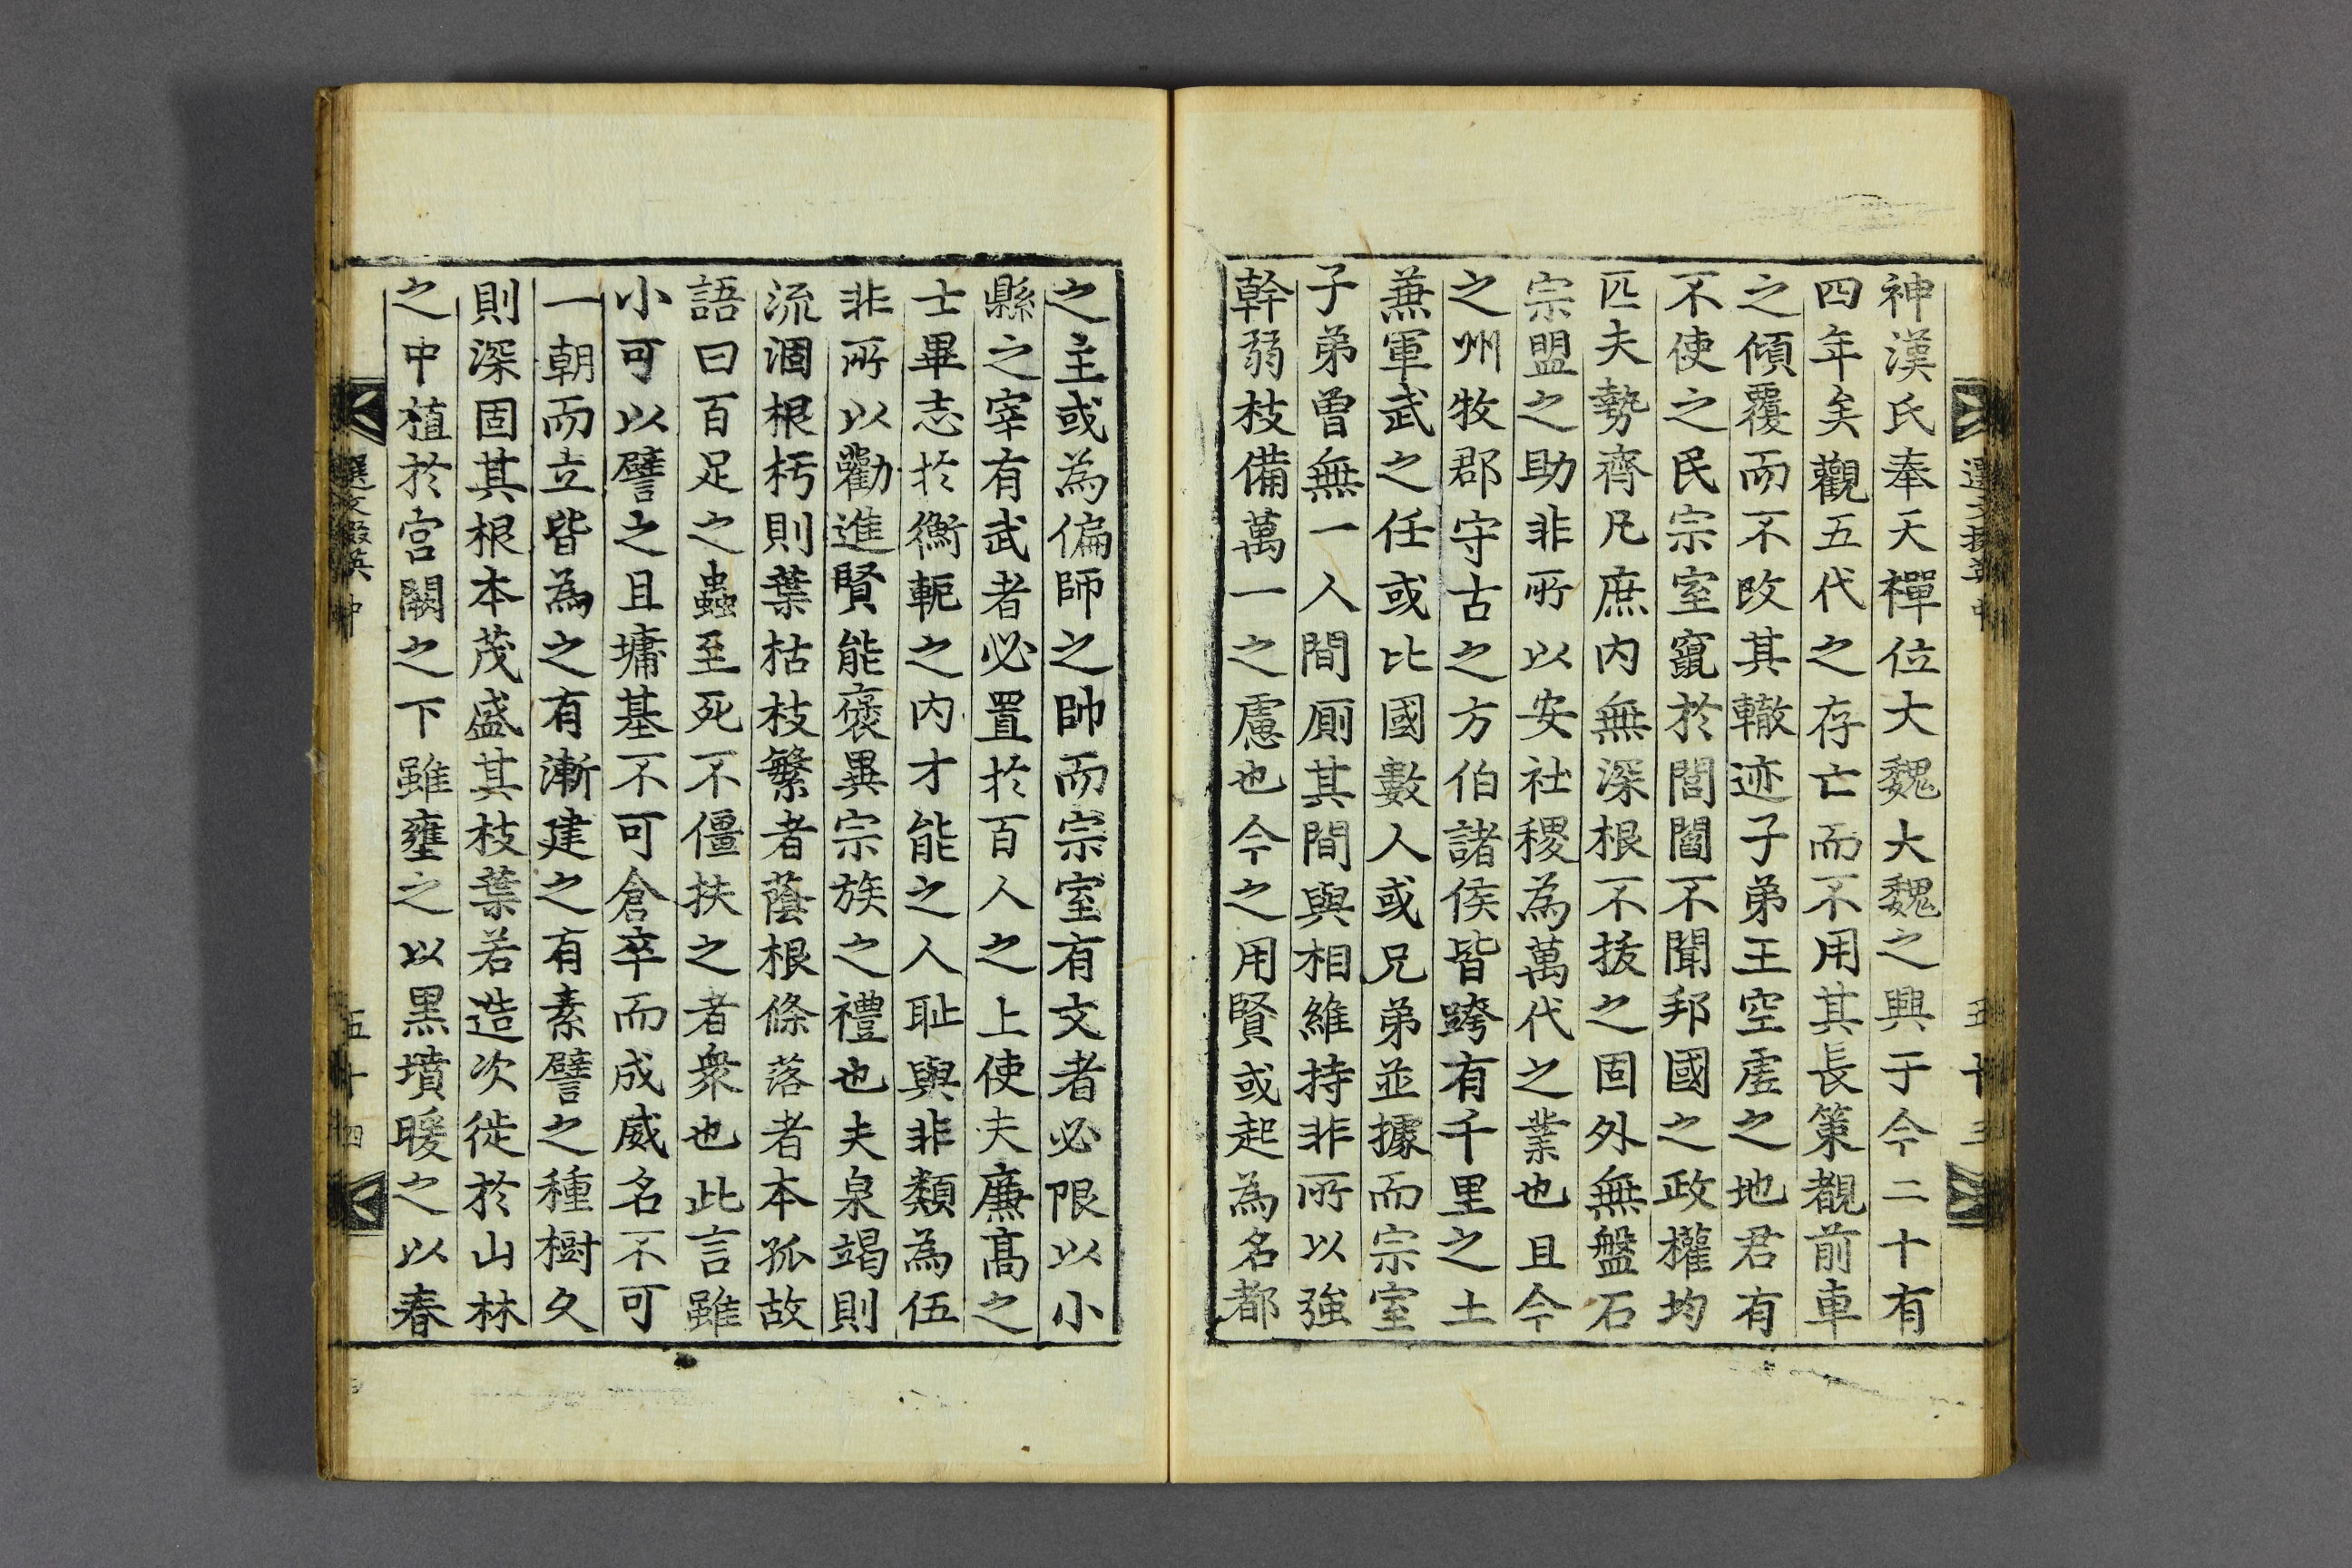 神漢氏奉天禪位大魏大魏之興于今二十有
四年矣觀五代之存亡而不用其長策覩前車
之傾覆而不改其轍迹子弟王空虗之地君有
不使之民宗室竄於閭閻不聞邦國之政權均
匹夫勢齊凡庶内無深根不拔之固外無盤石
宗盟之助非所以安社稷為萬代之業也且今
之州牧郡守古之方伯諸侯皆跨有千里之土
兼軍武之任或比國數人或兄弟並據而宗室
子弟曾無一人間厠其間與相維持非所以強
幹弱枝備萬一之慮也今之用賢或起為名都
之主或為偏師之帥而宗室有文者必限以小
縣之宰有武者必置於百人之上使夫廉髙之
士畢志於衡軛之内才能之人耻與非類為伍
非所以勸進賢能褒異宗族之禮也夫泉竭則
流涸根朽則葉枯枝繁者蔭根條落者本孤故
語曰百足之蟲至死不僵扶之者衆也此言雖
小可以譬之且墉基不可倉卒而成威名不可
一朝而立皆為之有漸建之有素譬之種樹久
則深固其根本茂盛其枝葉若造次徙於山林
之中植於宫闕之下雖壅之以黒墳暖之以春
五十四